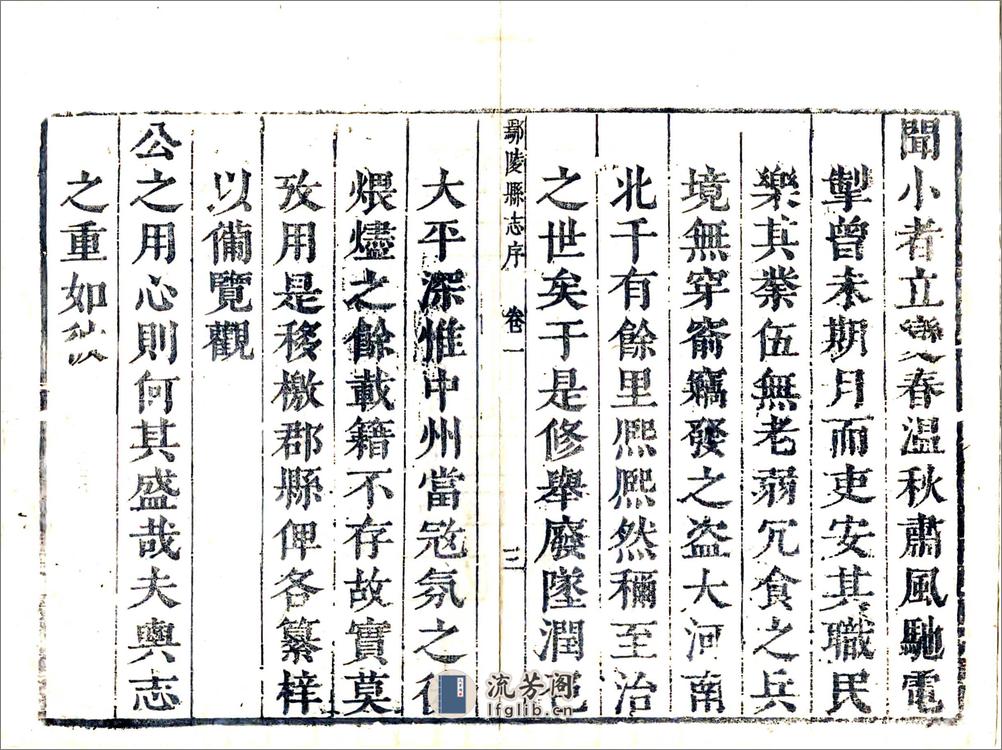 聞小者立變春溫秋肅風馳電
掣曾未期月而吏安其職民
樂其業伍無老弱冗食之兵
境無穿窬竊發之盜大河南
北千有餘里熙熙然稱至治
之世矣于是修舉廢墜潤
鄢陵縣志序 卷一 三
大平深惟中州當寇氛之
煨燼之餘載籍不存故實莫
攷用是移檄郡縣俾各纂梓
以備覽觀
公之用心則何其盛哉夫輿志
之重如
流芳阁
lfglib.cn